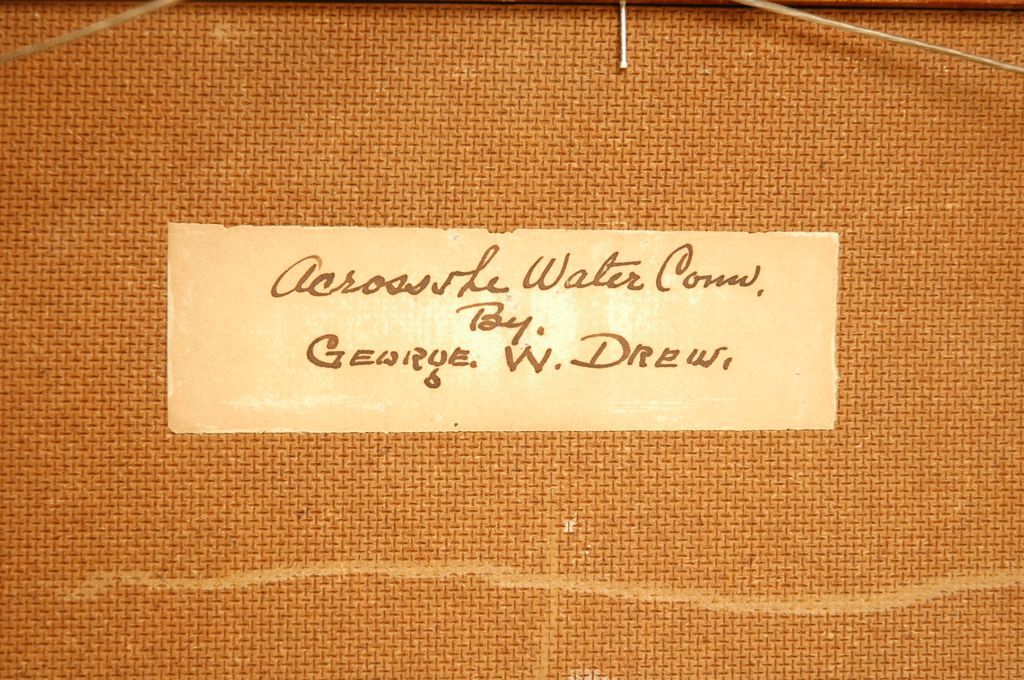 Across the Water Conn.
By.
GEORGE. W. DREW.